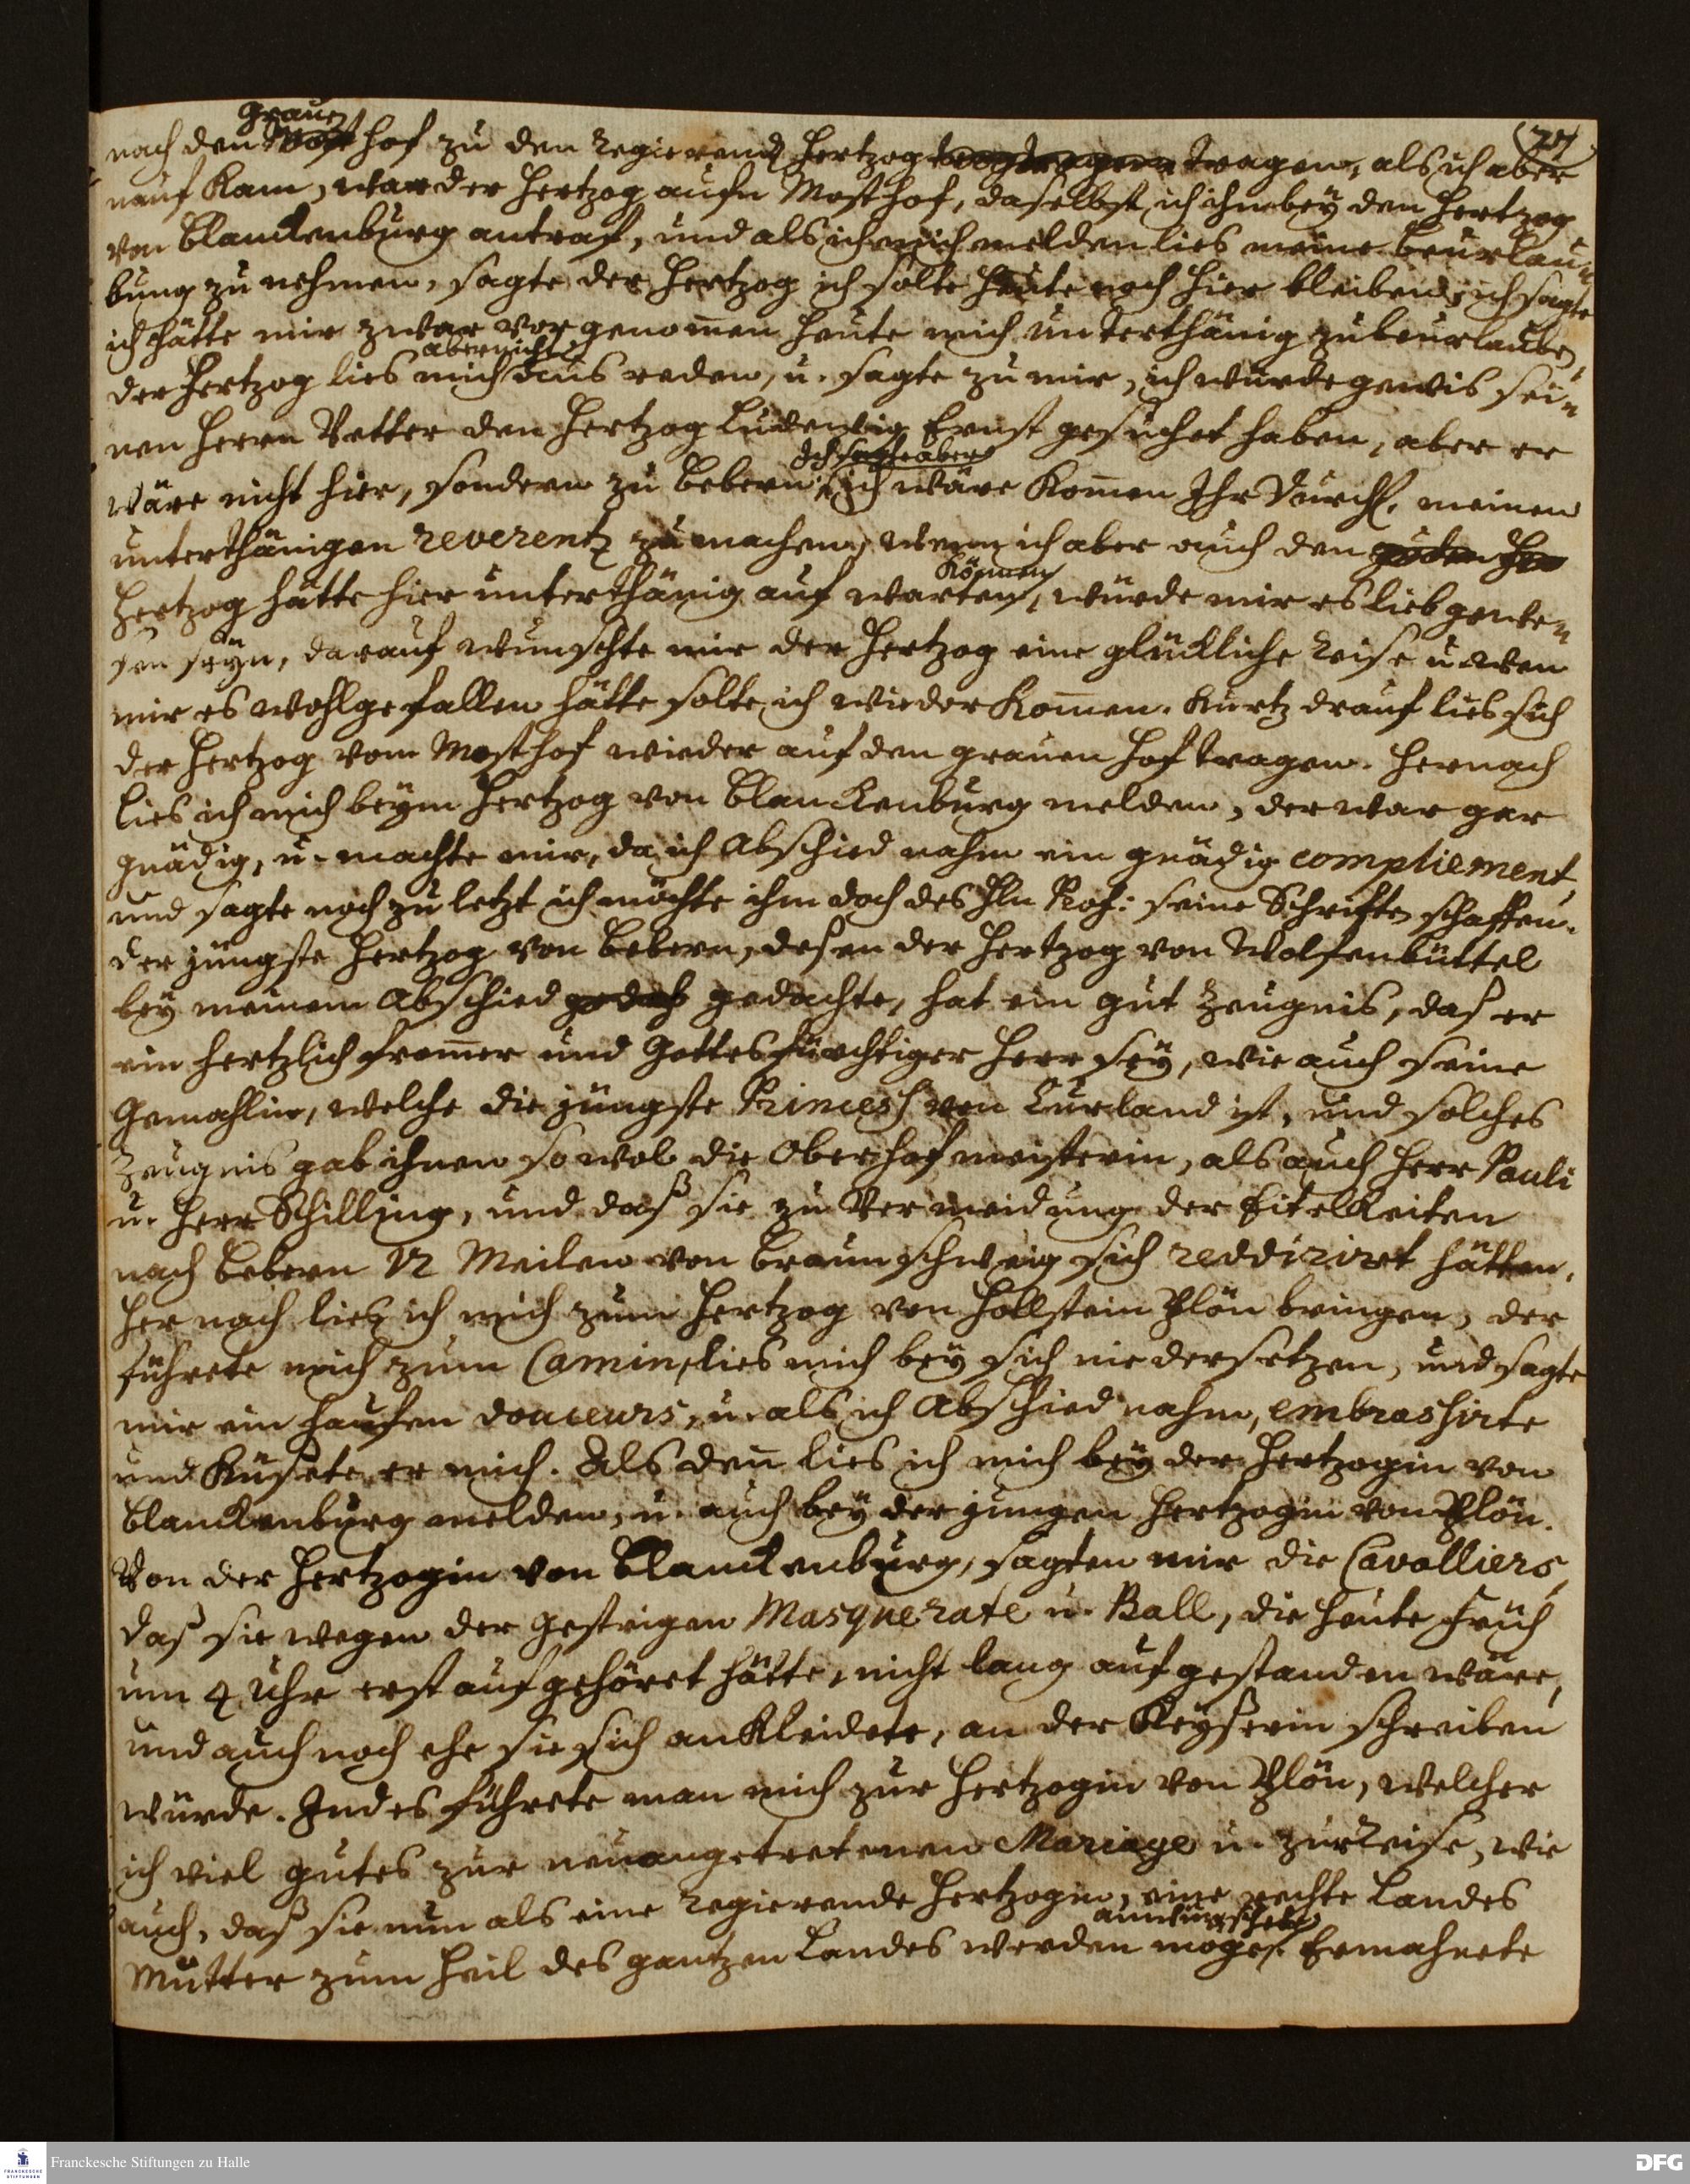 (27)
nach den grauen hof zu den regierend Hertzog tragen, als ich aber
nauf kam, war der Hertzog aufn Mosthof, daselbst ich ihn bey den Hertzog
von Blanckenburg antraf, und als ich mich melden lies meine beurlau=
bung zu nehmen, sagte der Hertzog ich solte heute noch hier bleiben, ich sagte
ich hätte mir zwar vorgenom̄en heute mich unterthänig zu beurlauben,
der Hertzog lies mich aber nicht aus reden, u. sagte zu mir, ich würde gewis sei=
nen Herrn Vetter den Hertzog Ludewig Ernst gesuchet haben, aber er
wäre nicht hier, sondern zu Bebern, Ich sagte aber ich wäre kom̄en Ihr Durchl. meinen
unterthänigen reverentz zu machen, wenn ich aber auch den guten Her
Hertzog hätte hier unterthänig auf warten können, würde mir es lieb gewe=
sen seyn, darauf wunschte mir der Hertzog eine glückliche reise u. wen
mir es wohlgefallen hätte solte ich wieder kom̄en. Kurtz drauf lies sich
der Hertzog vom Mosthof wieder auf den grauen hof tragen. Hernach
lies ich mich beym Hertzog von Blanckenburg melden, der war gar
gnädig, u. machte mir, da ich Abschied nahm ein gnädig compliement,
und sagte noch zu letzt ich möchte ihm doch des Hln seine Schriften schaffen.
der jüngste Hertzog von Bebern, desen der Hertzog von Wolfenbüttel
bey meinem Abschied gedach gedachte, hat ein gut Zeugnis, das er
ein hertzlich from̄er und Gottesfürchtiger Herr sey, wie auch seine
Gemahlin, welche die jüngste Princess von Curland ist, und solches
Zeugnis gab ihnen so wol die Oberhofmeisterin, als auch Herr Pauli
u. Herr Schilling, und daß sie zu Vermeidung der Eitelkeiten
nach Bebern 12 Meilen von Braunschweig sich reddiriret hätten.
Her nach lies ich mich zum Hertzog von Hollstein Plön bringen, der
führete mich zum Camin, lies mich bey sich niedersetzen, und sagte
mir ein haufen douceurs, u. als ich Abschied nahm, embrashirte
und küsete er mich. Als den̄ lies ich mich bey der Hertzogin von
Blanckenburg melden, u. auch bey der jungen Hertzogin von Plön.
Von der Hertzogin von Blanckenburg, sagten mir die Cavalliers,
daß sie wegen der gestrigen Masquerate u. Ball, die heute früh
um 4 Uhr erst aufgehöret hätte, nicht lang aufgestanden wäre,
und auch noch ehe sie sich ankleidete, an der Keyserin schreiben
würde. Indes führete man mich zur Hertzogin von Plön, welcher
ich viel gutes zur neuangetretenen Mariage u. zur reise, wie
auch, daß sie nun als eine regierende Hertzogin, eine rechte Landes
Mutter zum Heil des gantzen Landes werden möge, anwünschete. Ermahnete
Franckesche Stiftungen zu Halle
DFG